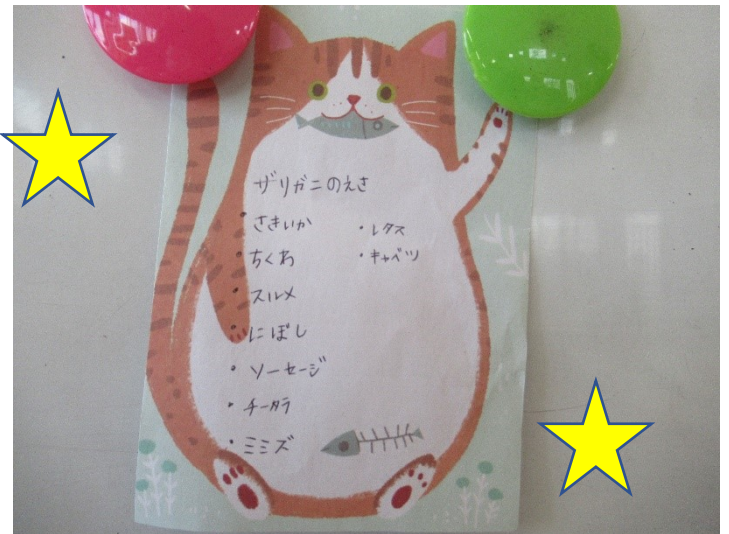 ザリガニのえさ
・さきいか
・ちくわ
・スルメ
・にぼし
・ソーセージ
・チータラ
・ミミズ
・レタス
・キャベツ